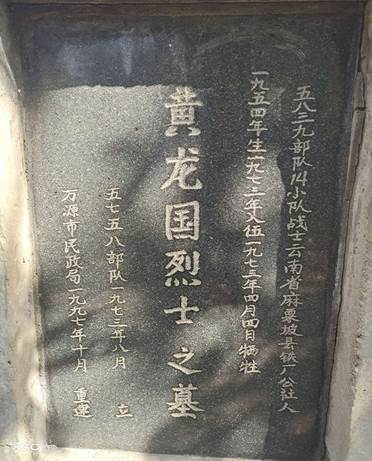 五八三九部队14小队战士云南省麻栗坡县铁厂公社人
一九五四年生一九七三年入伍一九七三年四月四日牺牲
黄龙国烈士之墓
五七五八部队一九七三年八月 立
万源市民政局一九九七年十月 重建